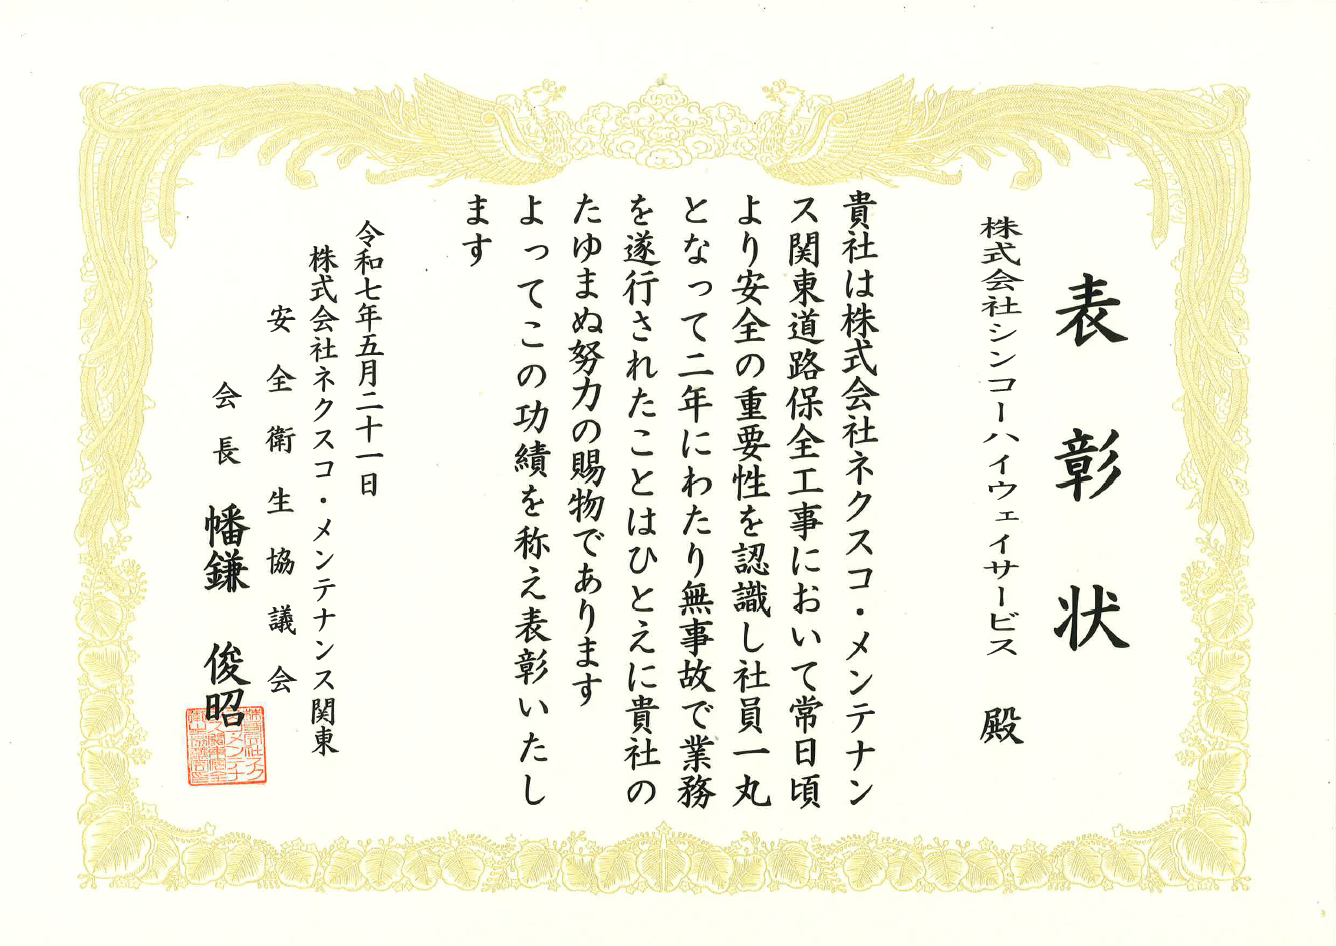 表彰状
株式会社シンコーハイウェイサービス 殿
貴社は株式会社ネクスコ・メンテナン
ス関東道路保全工事において常日頃
より安全の重要性を認識し社員一丸
となって二年にわたり無事故で業務
を遂行されたことはひとえに貴社の
たゆまぬ努力の賜物であります
よってこの功績を称え表彰いたし
ます
令和七年五月二十一日
株式会社ネクスコ・メンテナンス関東
安全衛生協議会
会長 幡鎌 俊昭